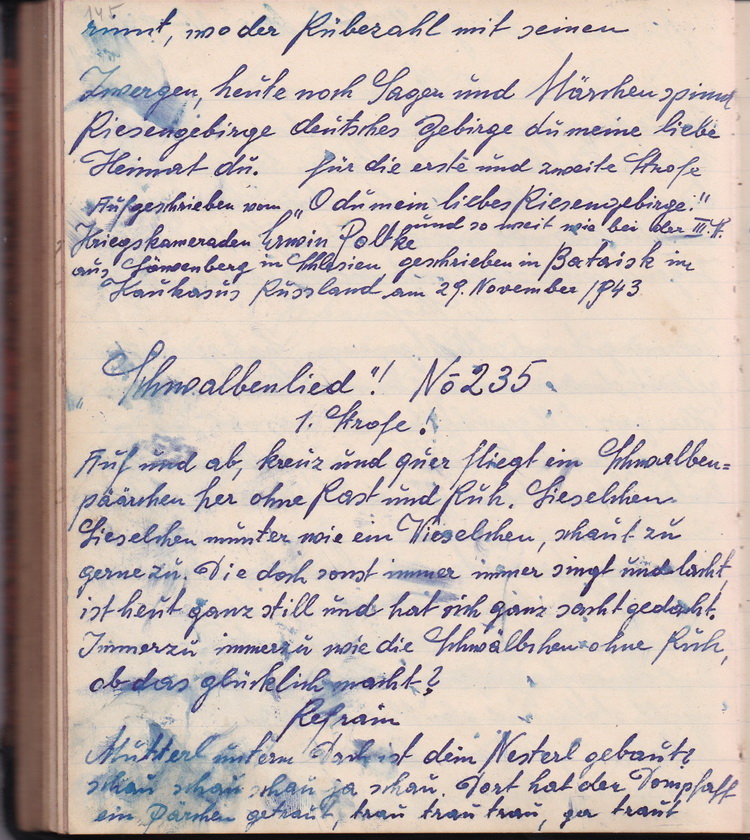 145
rinnt, wo der Rübezahl mit seinen
Zwergen, heute noch Sagen und Märchen spinnt
Riesengebirge deutsches Gebirge du meine liebe
Heimat du. für die erste und zweite Strofe
Aufgeschrieben vom „O du mein liebes Riesengebirge."
Kriegskameraden Erwin Poltke und so weit wie bei der III. St.
aus Löwenberg in Schlesien, geschrieben in Bataisk im
Kaukasus Russland am 29. November 1943
„Schwalbenlied"! No 235
1. Strofe!
Auf und ab, kreuz und quer fliegt ein Schwalben=
päärchen her ohne Rast und Ruh. Lieselchen
Lieselchen munter wie ein Wieselchen, schaut zu
gerne zu. Die doch sonst immer immer singt und lacht,
ist heut ganz still und hat sich ganz sacht gedacht.
Immerzu immerzu wie die Schwälbchen ohne Ruh,
ob das glücklich macht?
Refrain
Mutterl unterm Dach ist dein Nesterl gebaut,
schau schau schau ja schau. Dort hat der Dompfaff
ein Pärchen getraut, trau trau trau, ja traut